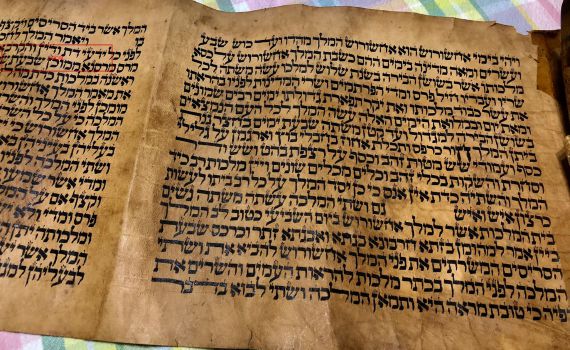 ויהי בימי אחשורוש הוא אחשורוש המלך מהדו ועד כוש שבע
ועשרים ומאה מדינה בימים ההם כשבת המלך אחשורוש על כסא
מלכותו אשר בשושן הבירה בשנת שלוש למלכו עשה משתה לכל
שריו ועבדיו חיל פרס ומדי הפרתמים ושרי המדינות לפניו בהראתו
את עשר כבוד מלכותו ואת יקר תפארת גדולתו ימים רבים שמונים
ומאת יום ובמלואת הימים האלה עשה המלך לכל העם הנמצאים
בשושן הבירה למגדול ועד קטן משתה שבעת ימים בחצר גנת ביתן
המלך חור כרפס ותכלת אחוז בחבלי בוץ וארגמן על גלילי
כסף ועמודי שש מטות זהב וכסף על רצפת בהט ושש ודר
וסחרת והשקות בכלי זהב וכלים מכלים שונים ויין מלכות רב כיד
המלך והשתיה כדת אין אנס כי כן יסד המלך על כל רב ביתו לעשות
כרצון איש ואיש גם ושתי המלכה עשתה משתה נשים
בית המלכות אשר למלך אחשורוש ביום השביעי כטוב לב המלך
ביין אמר למהומן בזתא חרבונא בגתא ואבגתא זתר וכרכס שבעת
הסריסים המשרתים את פני המלך אחשורוש להביא את ושתי
המלכה לפני המלך בכתר מלכות להראות העמים והשרים את
יפיה כי טובת מראה היא ותמאן המלכה ושתי לבוא בדבר
המלך אשר ביד הסריסים ויקצף
ויאמר המלך
לפני כל ידעי דת ודין והקרב
מרסנא ממוכן שבעת
ראשנה במלכות כדת
את מאמר המלך
ממוכן לפני המלך
המלכה כי על
המלך אחשורוש
בעליהן
ומדי אשר
וקצף אם
פרס ומדי ולא
ומלכותה
המלך
בעליהן